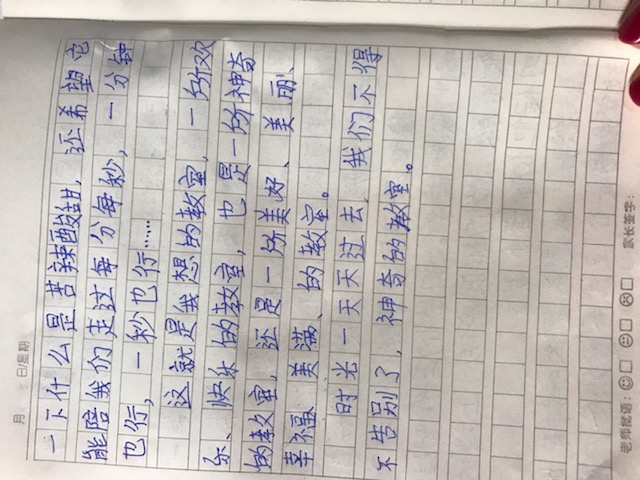 月 日/星期
一下什么是苦辣酸甜，还希望它
能陪我们走过每分每秒，一分钟
也行，一秒也行……
这就是我想的教室，一所欢
乐、快乐的教室，也是一所神奇
的教室，还是一所美好、美丽、
幸福、美满、的教室。
时光一天天过去，我们不得
不告别了，神奇的教室。
老师批语： 家长签字：